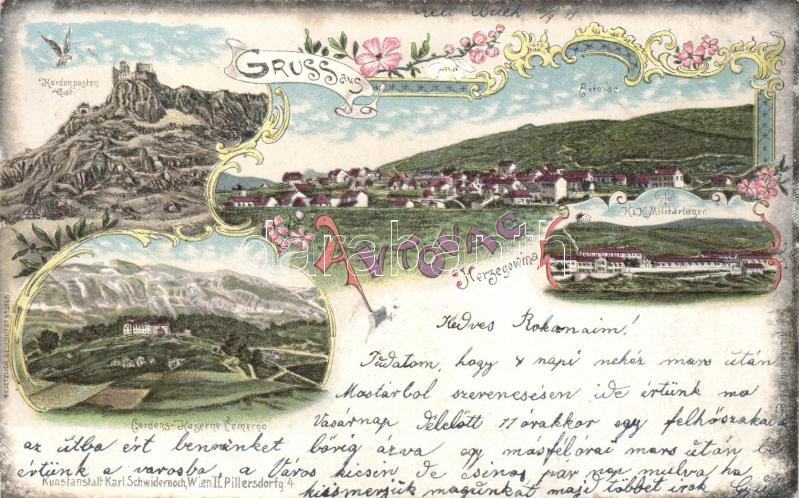 Kordonposten
Gat.
GRUSS aus
Avtovac.
K.u.K. Militärlager.
AVTOVAC
Herzegowina
Cordons-Kaserne Čemerno
Kedves Rokonaim!
Tudatom, hogy 4 napi nehéz mars után
Mostárbol szerencsésen ide értünk ma
Vasárnap Délelőtt 11 órakkor egy felhőszakadás
az útba ért bennünket bőrig ázva egy másfél órai mars után
értünk a városba a Város kicsin de csinos par nap mulva ha
kiismerjük magunkat majd többet irok
Kunstanstalt Karl Schwidernoch, Wien II. Pillersdorfg. 4.